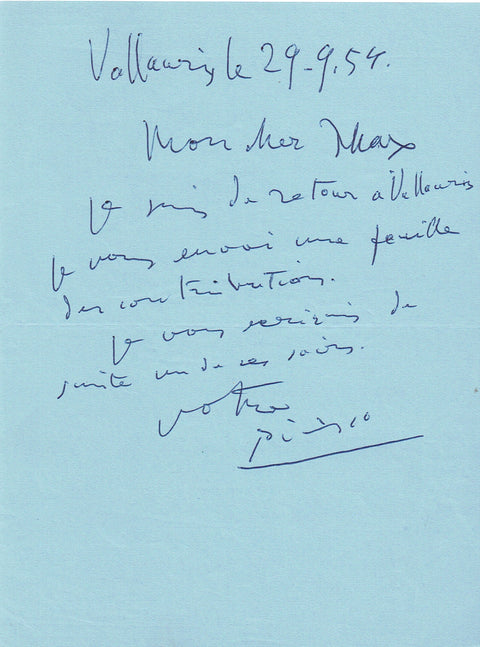 Vallauris le 29-9.54.
Mon cher Max
Je suis de retour à Vallauris
Je vous envoi une feuille
des contributions.
Je vous ecrirais de
suite un de ces soirs.
votre
Picasso